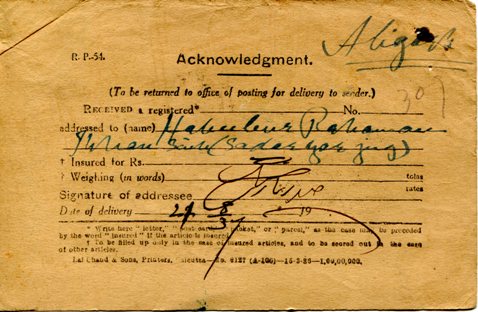 R. P.-54.
Acknowledgment.
(To be returned to office of posting for delivery to sender.)
RECEIVED a registered* No. 307
addressed to (name) Rahaman
† Insured for Rs.
† Weighing (in words) tolas
rates
Signature of addressee
Date of delivery 24 8/37 19
* Write here "letter," "post card," "packet," or "parcel," as the case may be preceded
by the word "insured" if the article is insured.
† To be filled up only in the case of insured articles, and to be scored out in the case
of other articles.
Lal Chand & Sons, Printers, Calcutta—No. 9127 (A-106)—15-2-36—1,00,00,000.